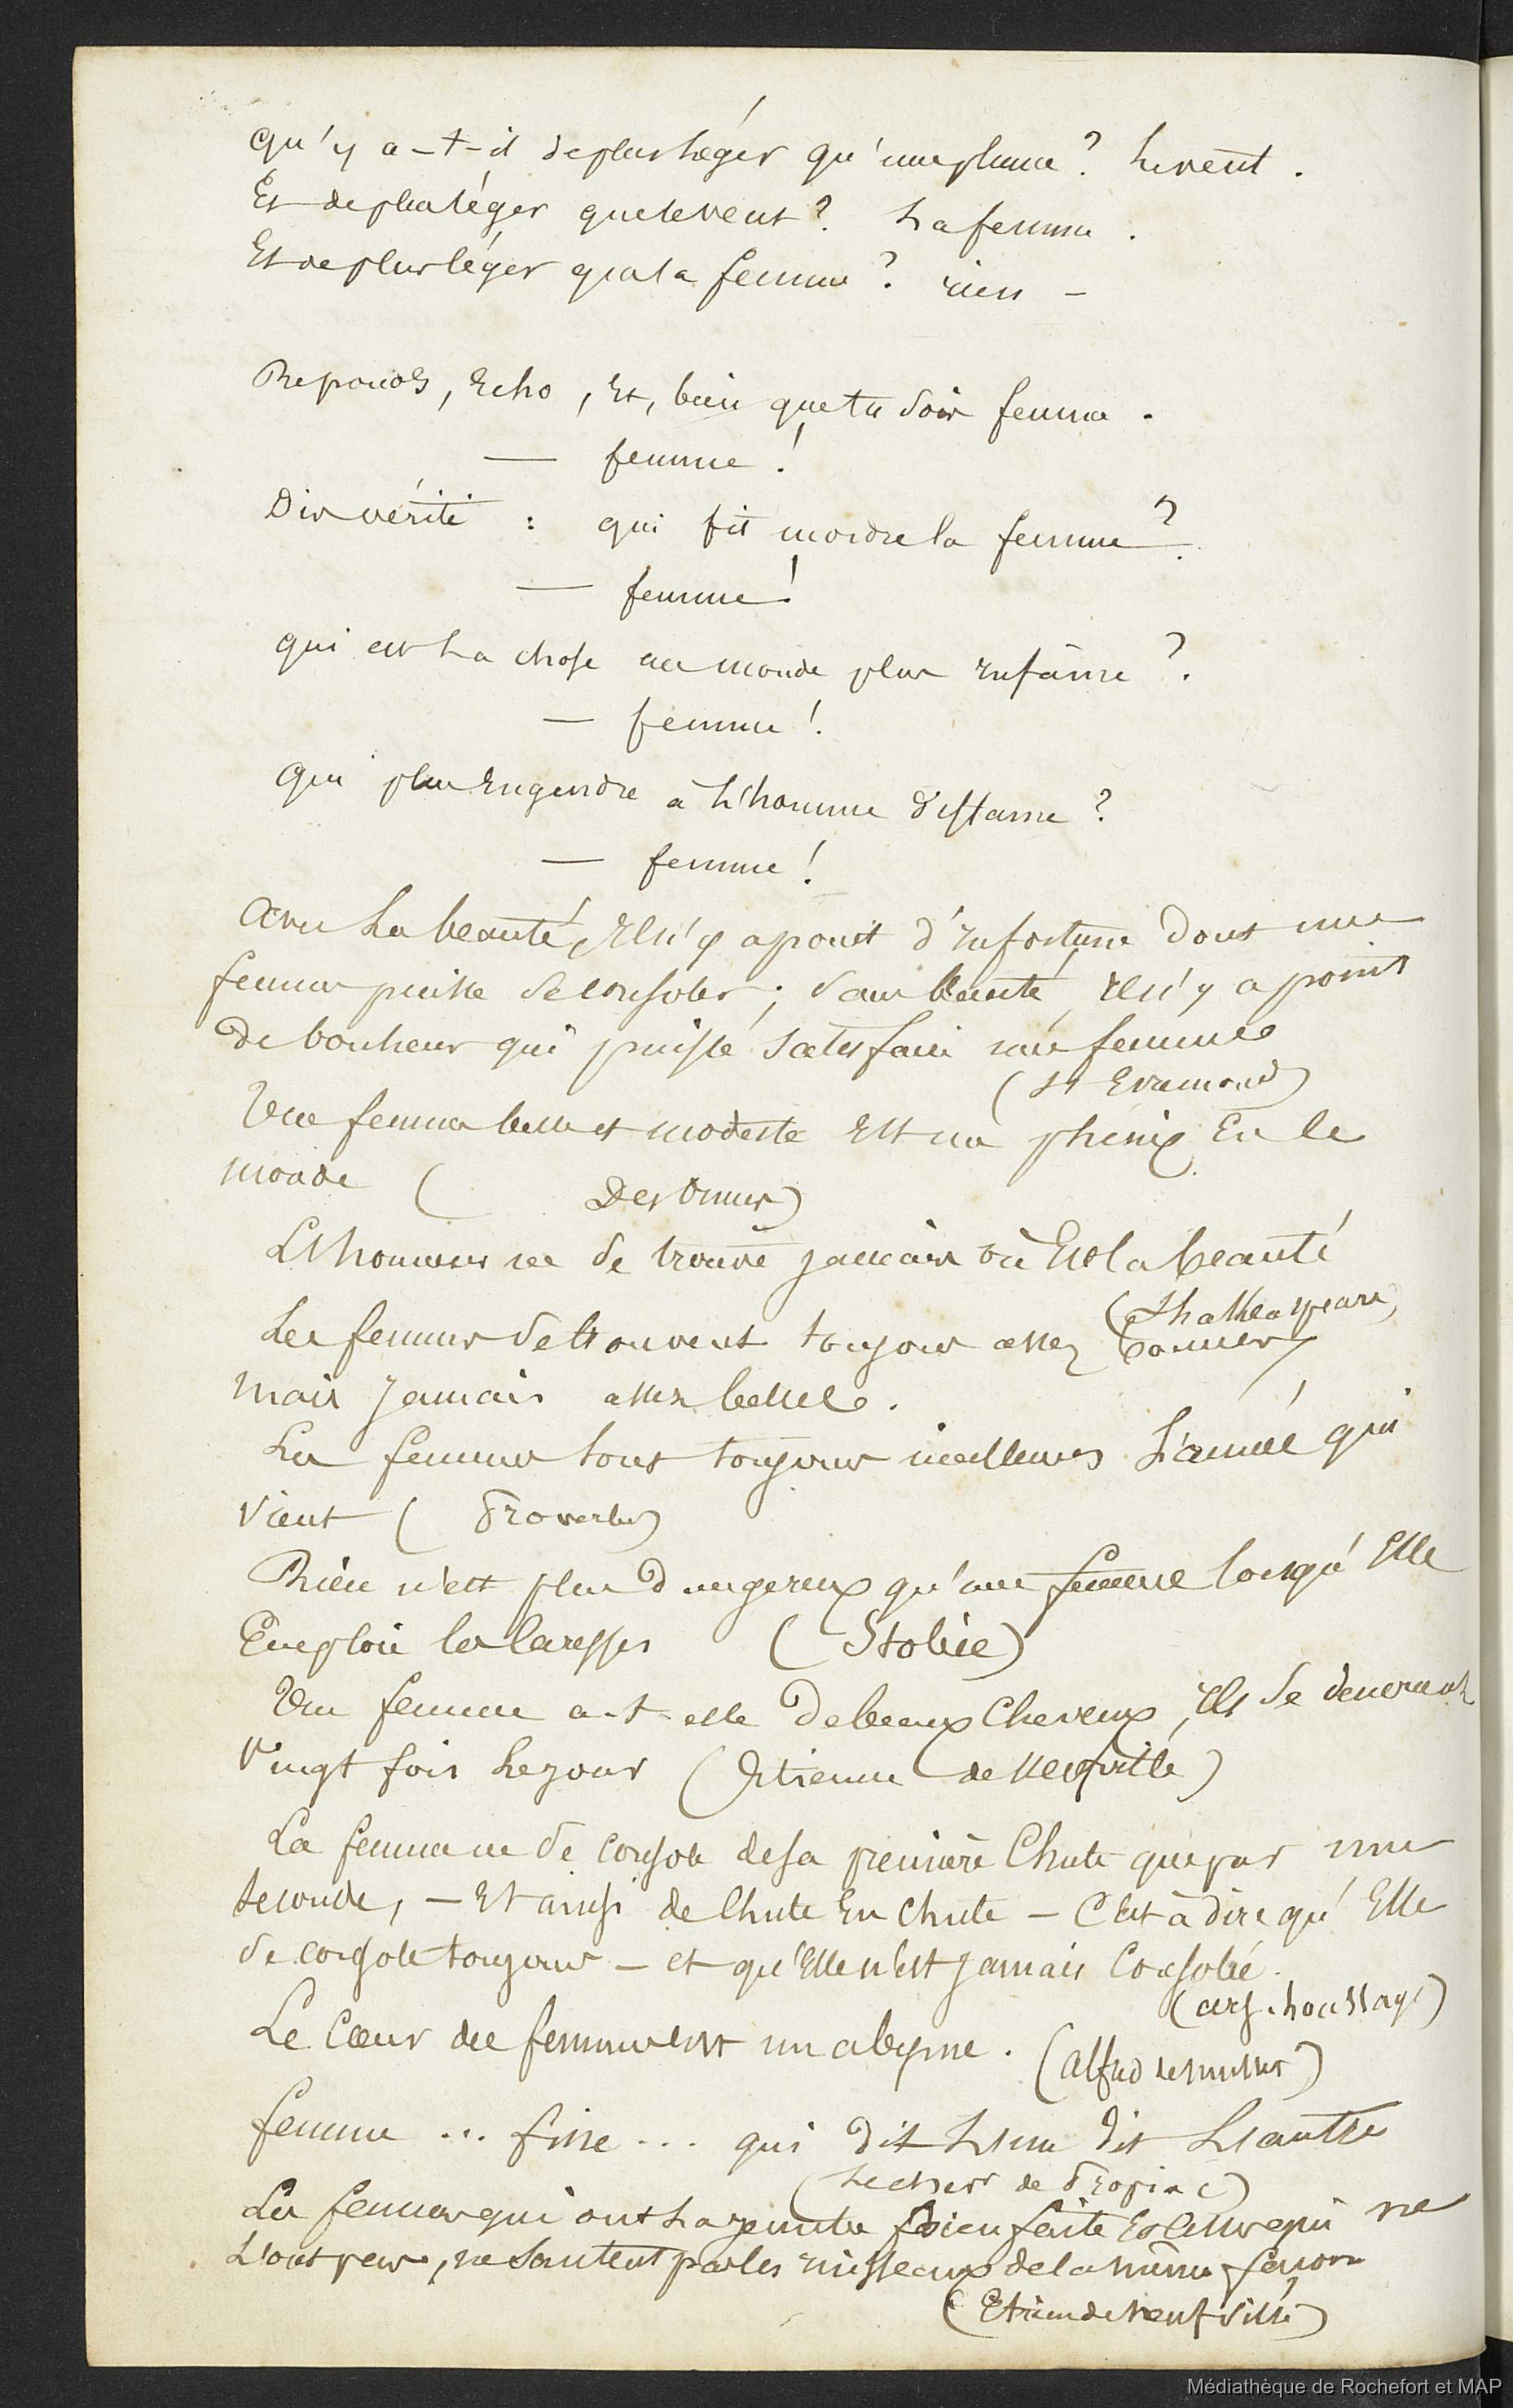 Qu'y a-t-il de plus léger qu'une plume? Le vent.
Et de plus léger que le vent? La femme.
Et de plus léger que la femme? rien –
Reponds, Echo, Et, bien que tu sois femme.
— femme!
Dis vérité : qui fit mordre la femme?
— femme!
qui est La chose au monde plus infâme?
— femme!
Qui plus Engendre à L'homme diffame?
— femme!
Avec La beauté, Il n'y a point d'infortune dont une
femme puisse se consoler; sans beauté, Il n'y a point
de bonheur qui puisse satisfaire une femme
(St Evremond)
Une femme belle et modeste Est un phénix En le
monde ( Des Ormes)
L'honneur ne se trouve jamais où Est la beauté
(Shakespeare)
Les femmes se trouvent toujours assez bonnes,
mais jamais assez belles.
Les femmes sont toujours meilleures L'année qui
vient ( Proverbe)
Rien n'est plus dangereux qu'une femme lorsqu'Elle
Emploie les caresses (Stobée)
Une femme a-t-elle de beaux cheveux, Ils se dénouent
Vingt fois Le jour (Etienne de Neufville)
La femme ne se console de sa première Chute que par une
seconde, – Et ainsi de Chute En Chute – C'est à dire qu'Elle
se console toujours – et qu'Elle n'est jamais Consolée.
(ars. houssaye)
Le Cœur de femme est un abyme. (Alfred de musset)
femme ... fine ... qui dit L'une dit L'autre
(Le chev de Propiac)
Les femmes qui ont La jambe bien faite Et celles qui ne
L'ont pas, ne sautent pas les ruisseaux de la même façon
(Etien de Neufville)
Médiathèque de Rochefort et MAP